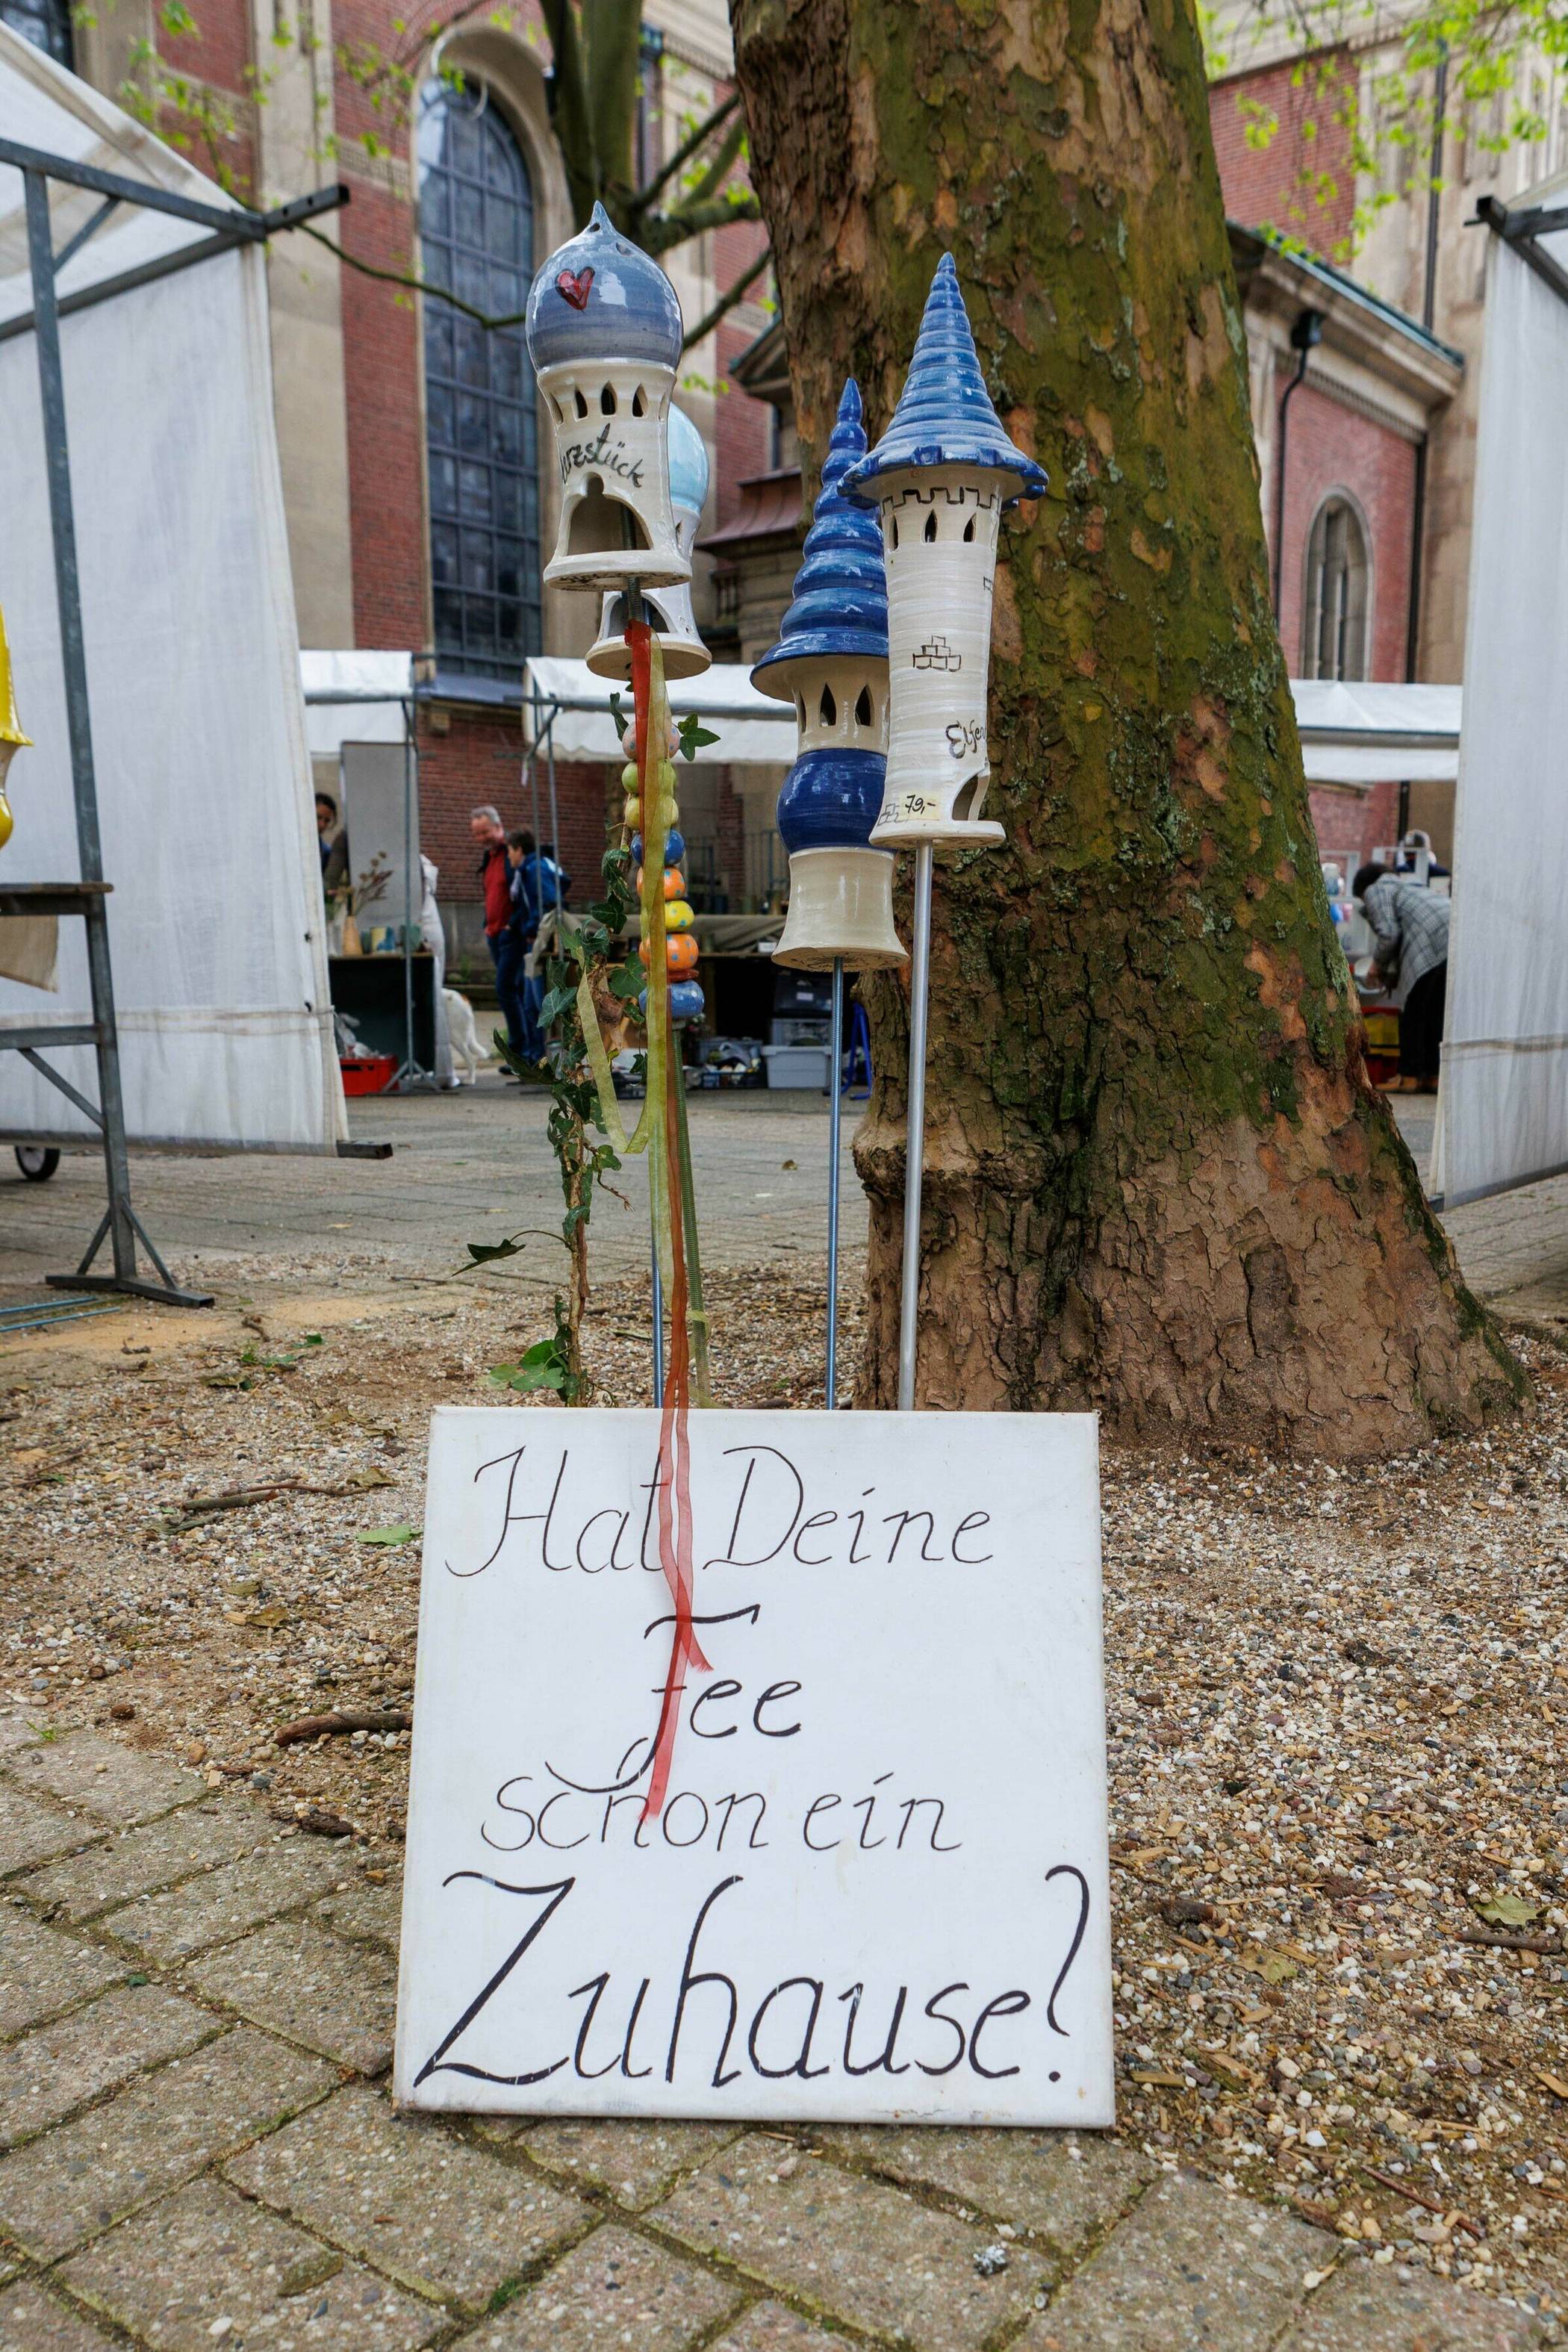 Elfen
79,-
Hat Deine
Fee
schon ein
Zuhause?